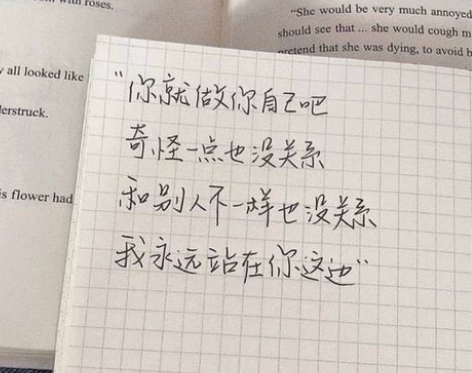 with roses.
"She would be very much annoyed
should see that ... she would cough m
pretend that she was dying, to avoid b
all looked like
lerstruck.
is flower had
"你就做你自己吧
奇怪一点也没关系
和别人不一样也没关系
我永远站在你这边"